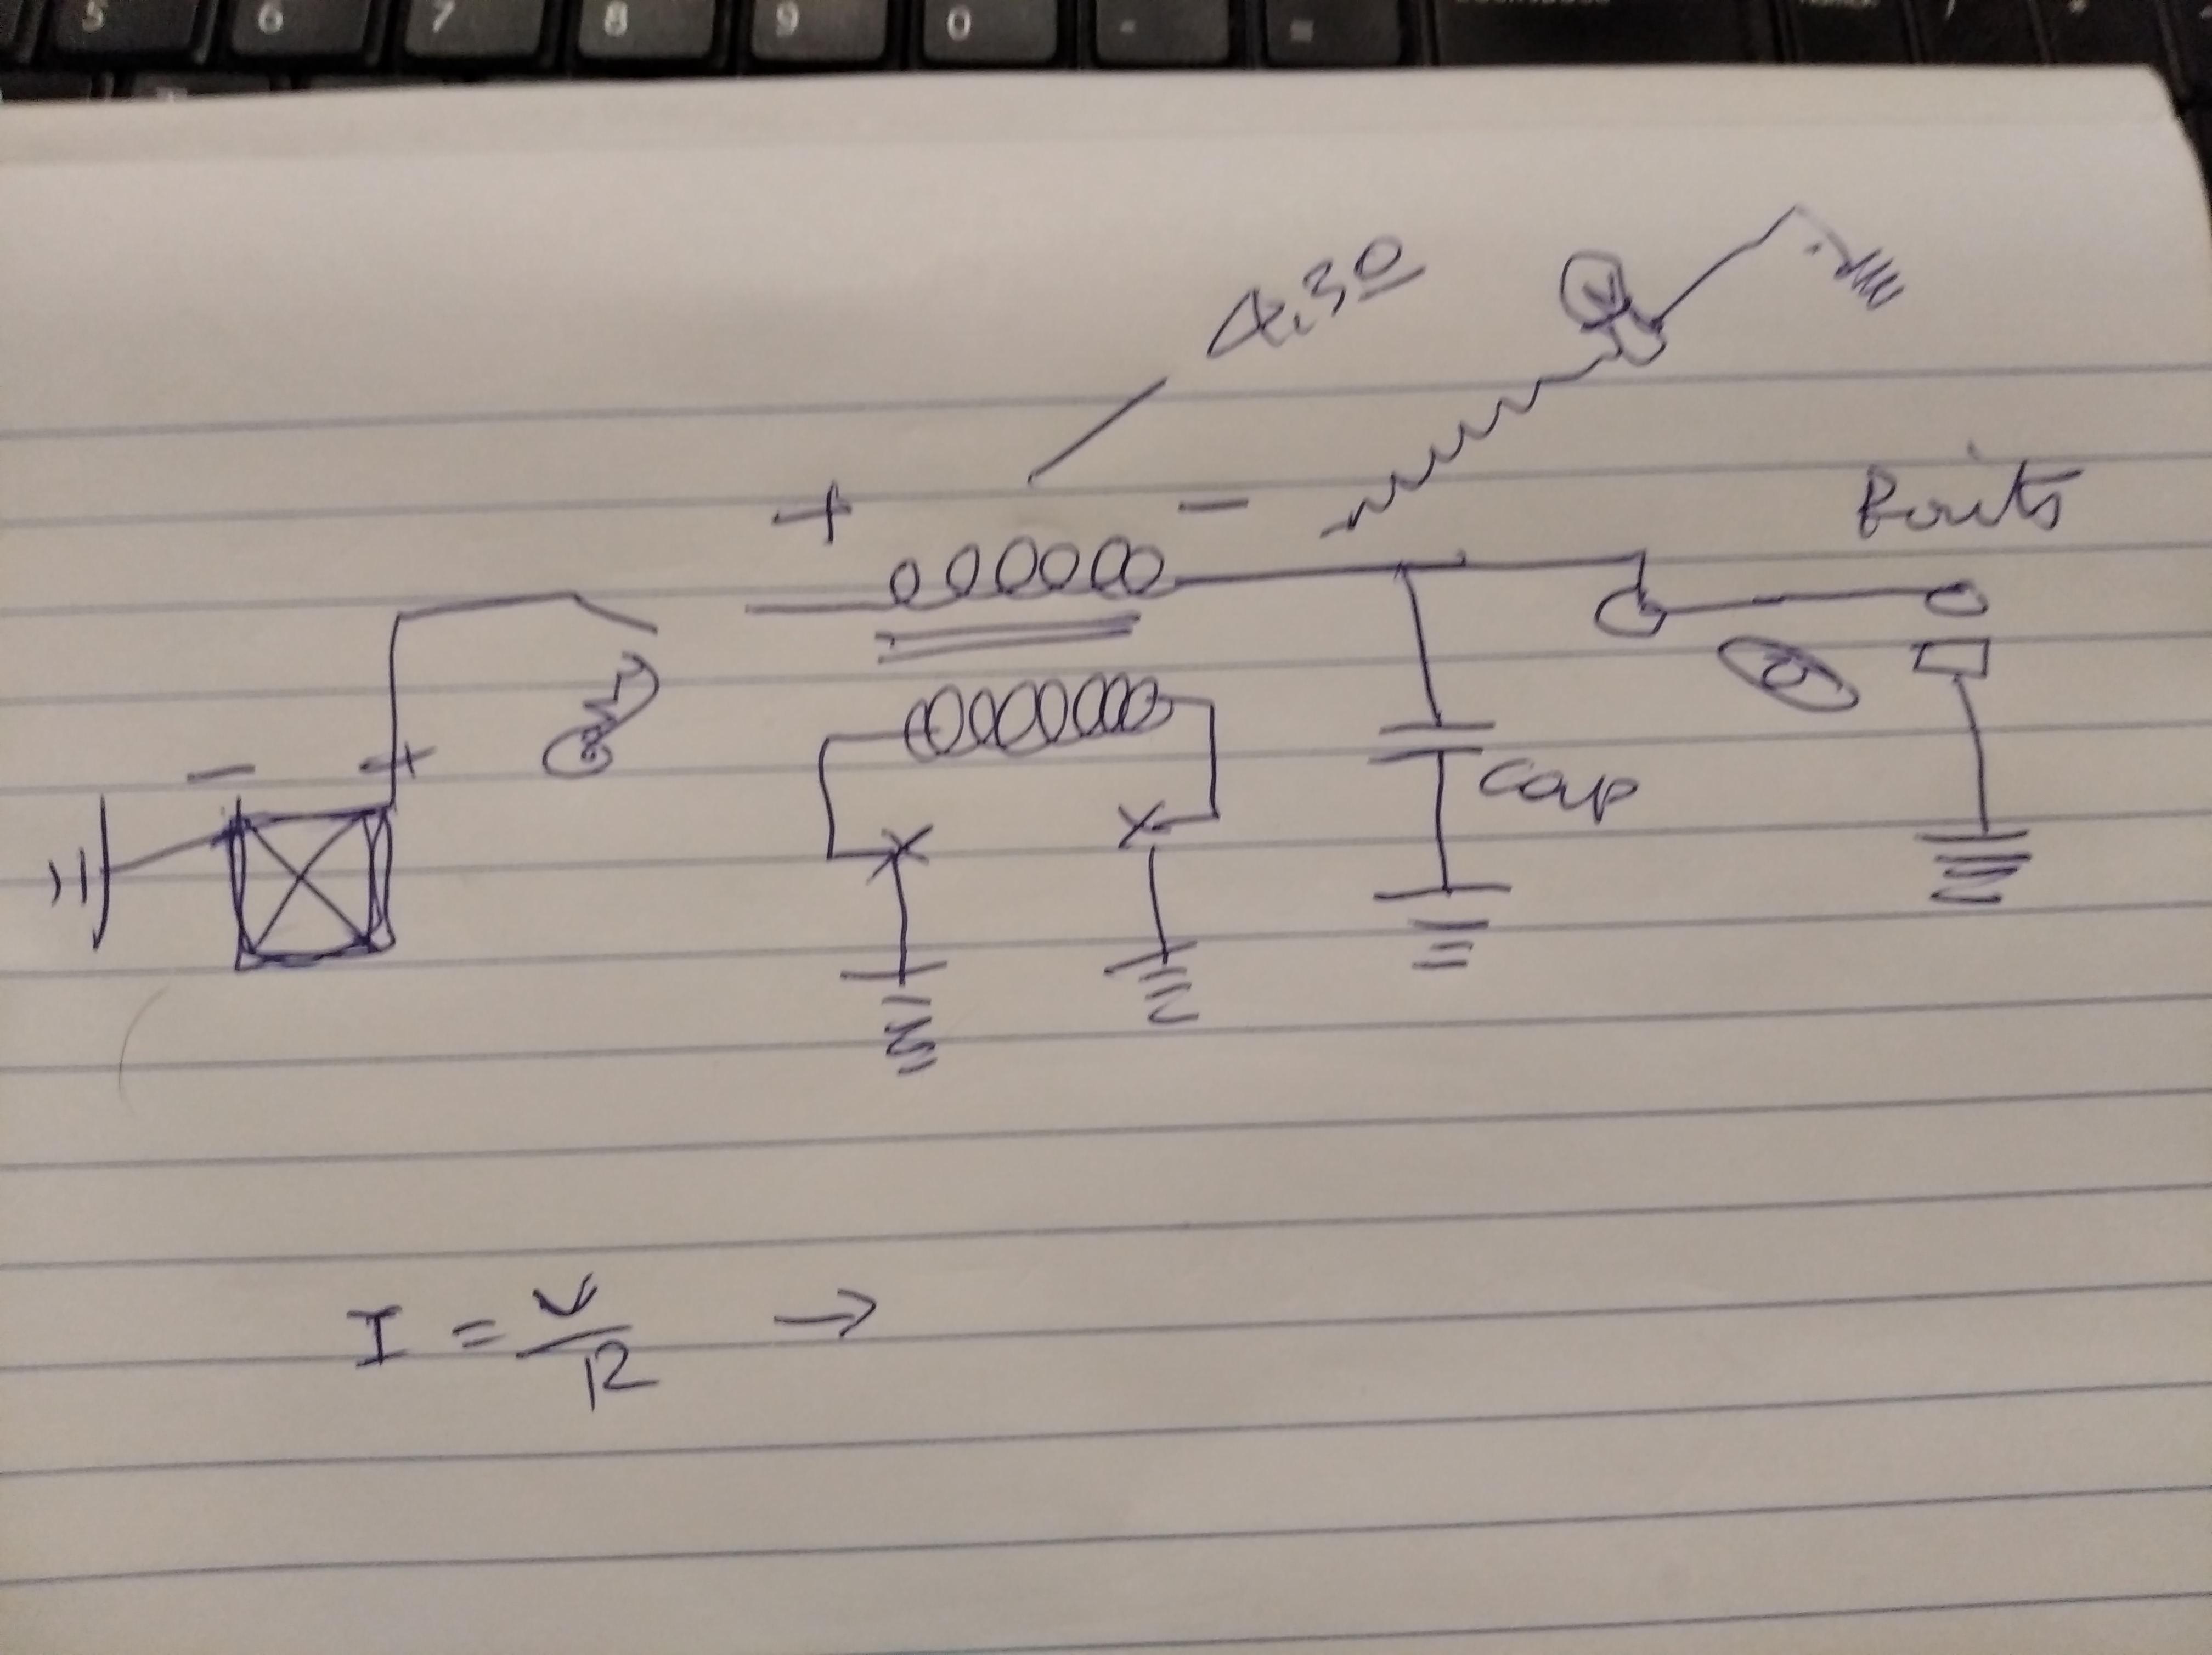 5 6 7 8 9 0 - =
4.3Ω
+ -
Points
- +
cap
I = V/R →